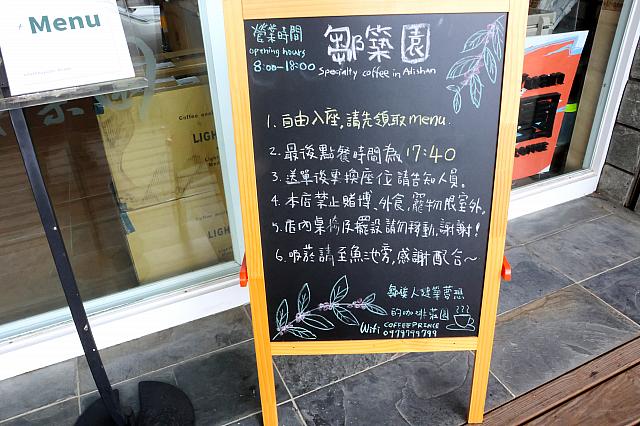 Menu
營業時間
opening hours
8:00-18:00
鄒築園
Specialty coffee in Alishan
1. 自由入座,請先領取menu.
2. 最後點餐時間為17:40
3. 送單後更換座位請告知人員。
4. 本店禁止賭博、外食,寵物限室外。
5. 店內桌椅及擺設請勿移動,謝謝!
6. 吸菸請至魚池旁,感謝配合~
鄒族人建築夢想
的咖啡莊園
Wifi COFFEEPRINCE
0979799799
Coffee
LIGH
LIGH
COFFEE